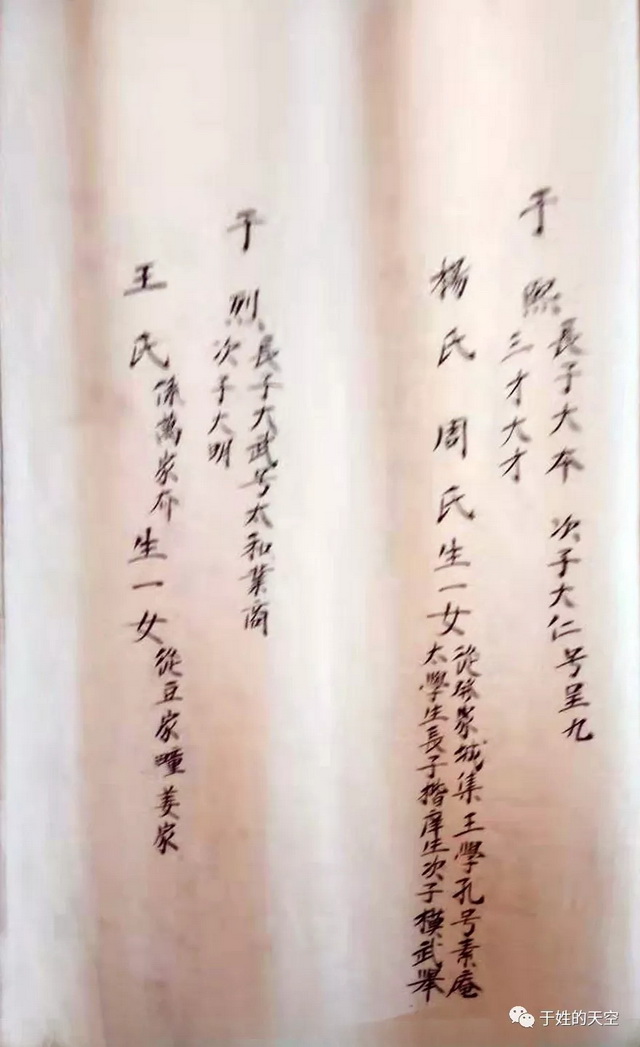 于熙長子大本 次子大仁号呈九
三才大才
楊氏 周氏生一女從孫家城集王學孔号素庵
太學生長子楷庠生次子模武舉
于烈長子大武号太和業商
次子大明
王氏係萬家介生一女從豆家疃姜家
于姓的天空